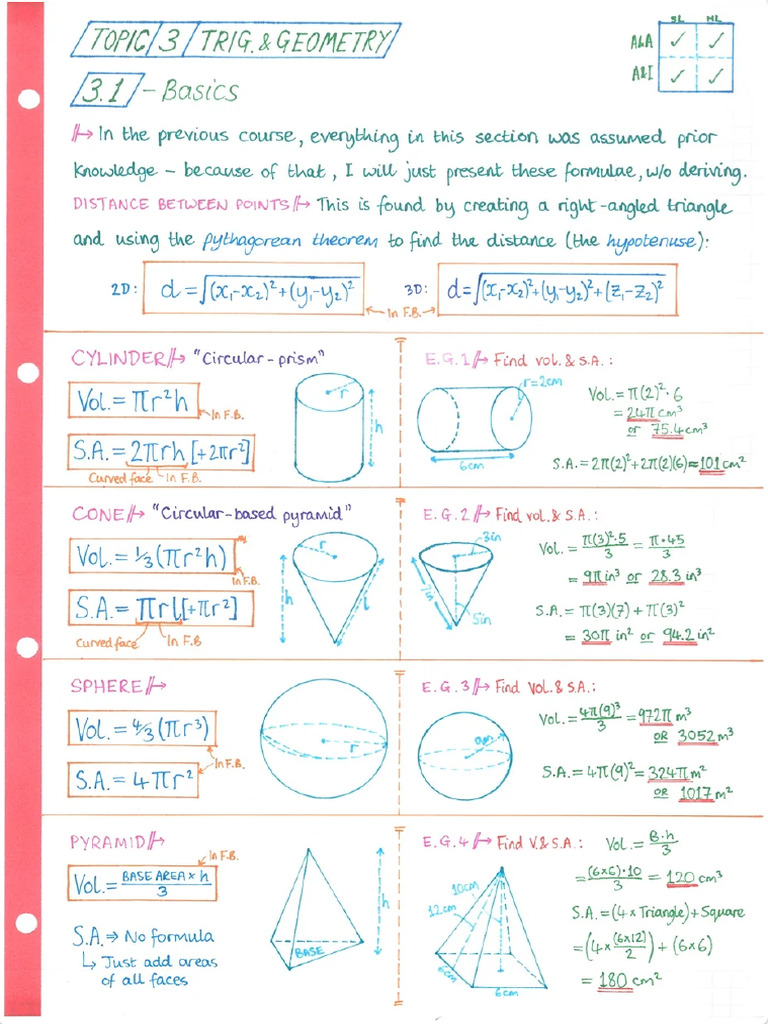 TOPIC 3 TRIG. & GEOMETRY
SL HL
A&A ✓ ✓
A&I ✓ ✓
3.1 - Basics
↦ In the previous course, everything in this section was assumed prior
knowledge – because of that, I will just present these formulae, w/o deriving.
DISTANCE BETWEEN POINTS ↦ This is found by creating a right-angled triangle
and using the pythagorean theorem to find the distance (the hypotenuse):
2D: d = √(x₁-x₂)²+(y₁-y₂)² 3D: d = √(x₁-x₂)²+(y₁-y₂)²+(z₁-z₂)²
← In F.B. →
CYLINDER ↦ "Circular-prism"
Vol. = πr²h
In F.B.
S.A. = 2πrh [+2πr²]
Curved face In F.B.
r
h
E.G.1 ↦ Find vol. & S.A.:
r=2cm
6cm
Vol. = π(2)²·6
= 24π cm³
or 75.4 cm³
S.A. = 2π(2)²+2π(2)(6) ≈ 101 cm²
CONE ↦ "Circular-based pyramid"
Vol. = 1/3 (πr²h)
In F.B.
S.A. = πrl [+πr²]
Curved face In F.B.
r
h
l
E.G.2 ↦ Find vol. & S.A.:
3in
7in
5in
Vol. = π(3)²·5/3 = π·45/3
= 9π in³ or 28.3 in³
S.A. = π(3)(7) + π(3)²
= 30π in² or 94.2 in²
SPHERE ↦
Vol. = 4/3 (πr³)
In F.B.
S.A. = 4πr²
r
E.G.3 ↦ Find Vol. & S.A.:
9m
Vol. = 4π(9)³/3 = 972π m³
OR 3052 m³
S.A. = 4π(9)² = 324π m²
OR 1017 m²
PYRAMID ↦
In F.B.
Vol. = BASE AREA × h/3
S.A. ⇒ No formula
↳ Just add areas
of all faces
BASE
h
E.G.4 ↦ Find V. & S.A.:
10cm
12cm
6cm
6cm
Vol. = B·h/3
= (6×6)·10/3 = 120 cm³
S.A. = (4 × Triangle) + Square
= (4 × (6×12)/2) + (6×6)
= 180 cm²